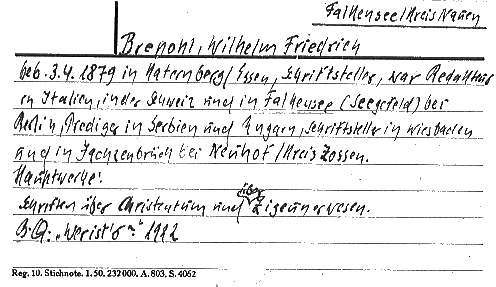 Falkensee/Kreis Nauen
Brepohl, Wilhelm Friedrich
geb. 3.4. 1879 in Katernberg/Essen, Schriftsteller, war Redakteur
in Italien, in der Schweiz und in Falkensee (Seegefeld) bei
Berlin, Prediger in Serbien und Ungarn, Schriftsteller in Wiesbaden
und in Jachzenbrück bei Neuhof/Kreis Zossen.
Hauptwerke:
Schriften über Christentum und über Zigeunerwesen.
B.Q.: „Wer ist's?" 1912
Reg. 10. Stichnote. 1. 50. 232000. A. 803. S. 4062